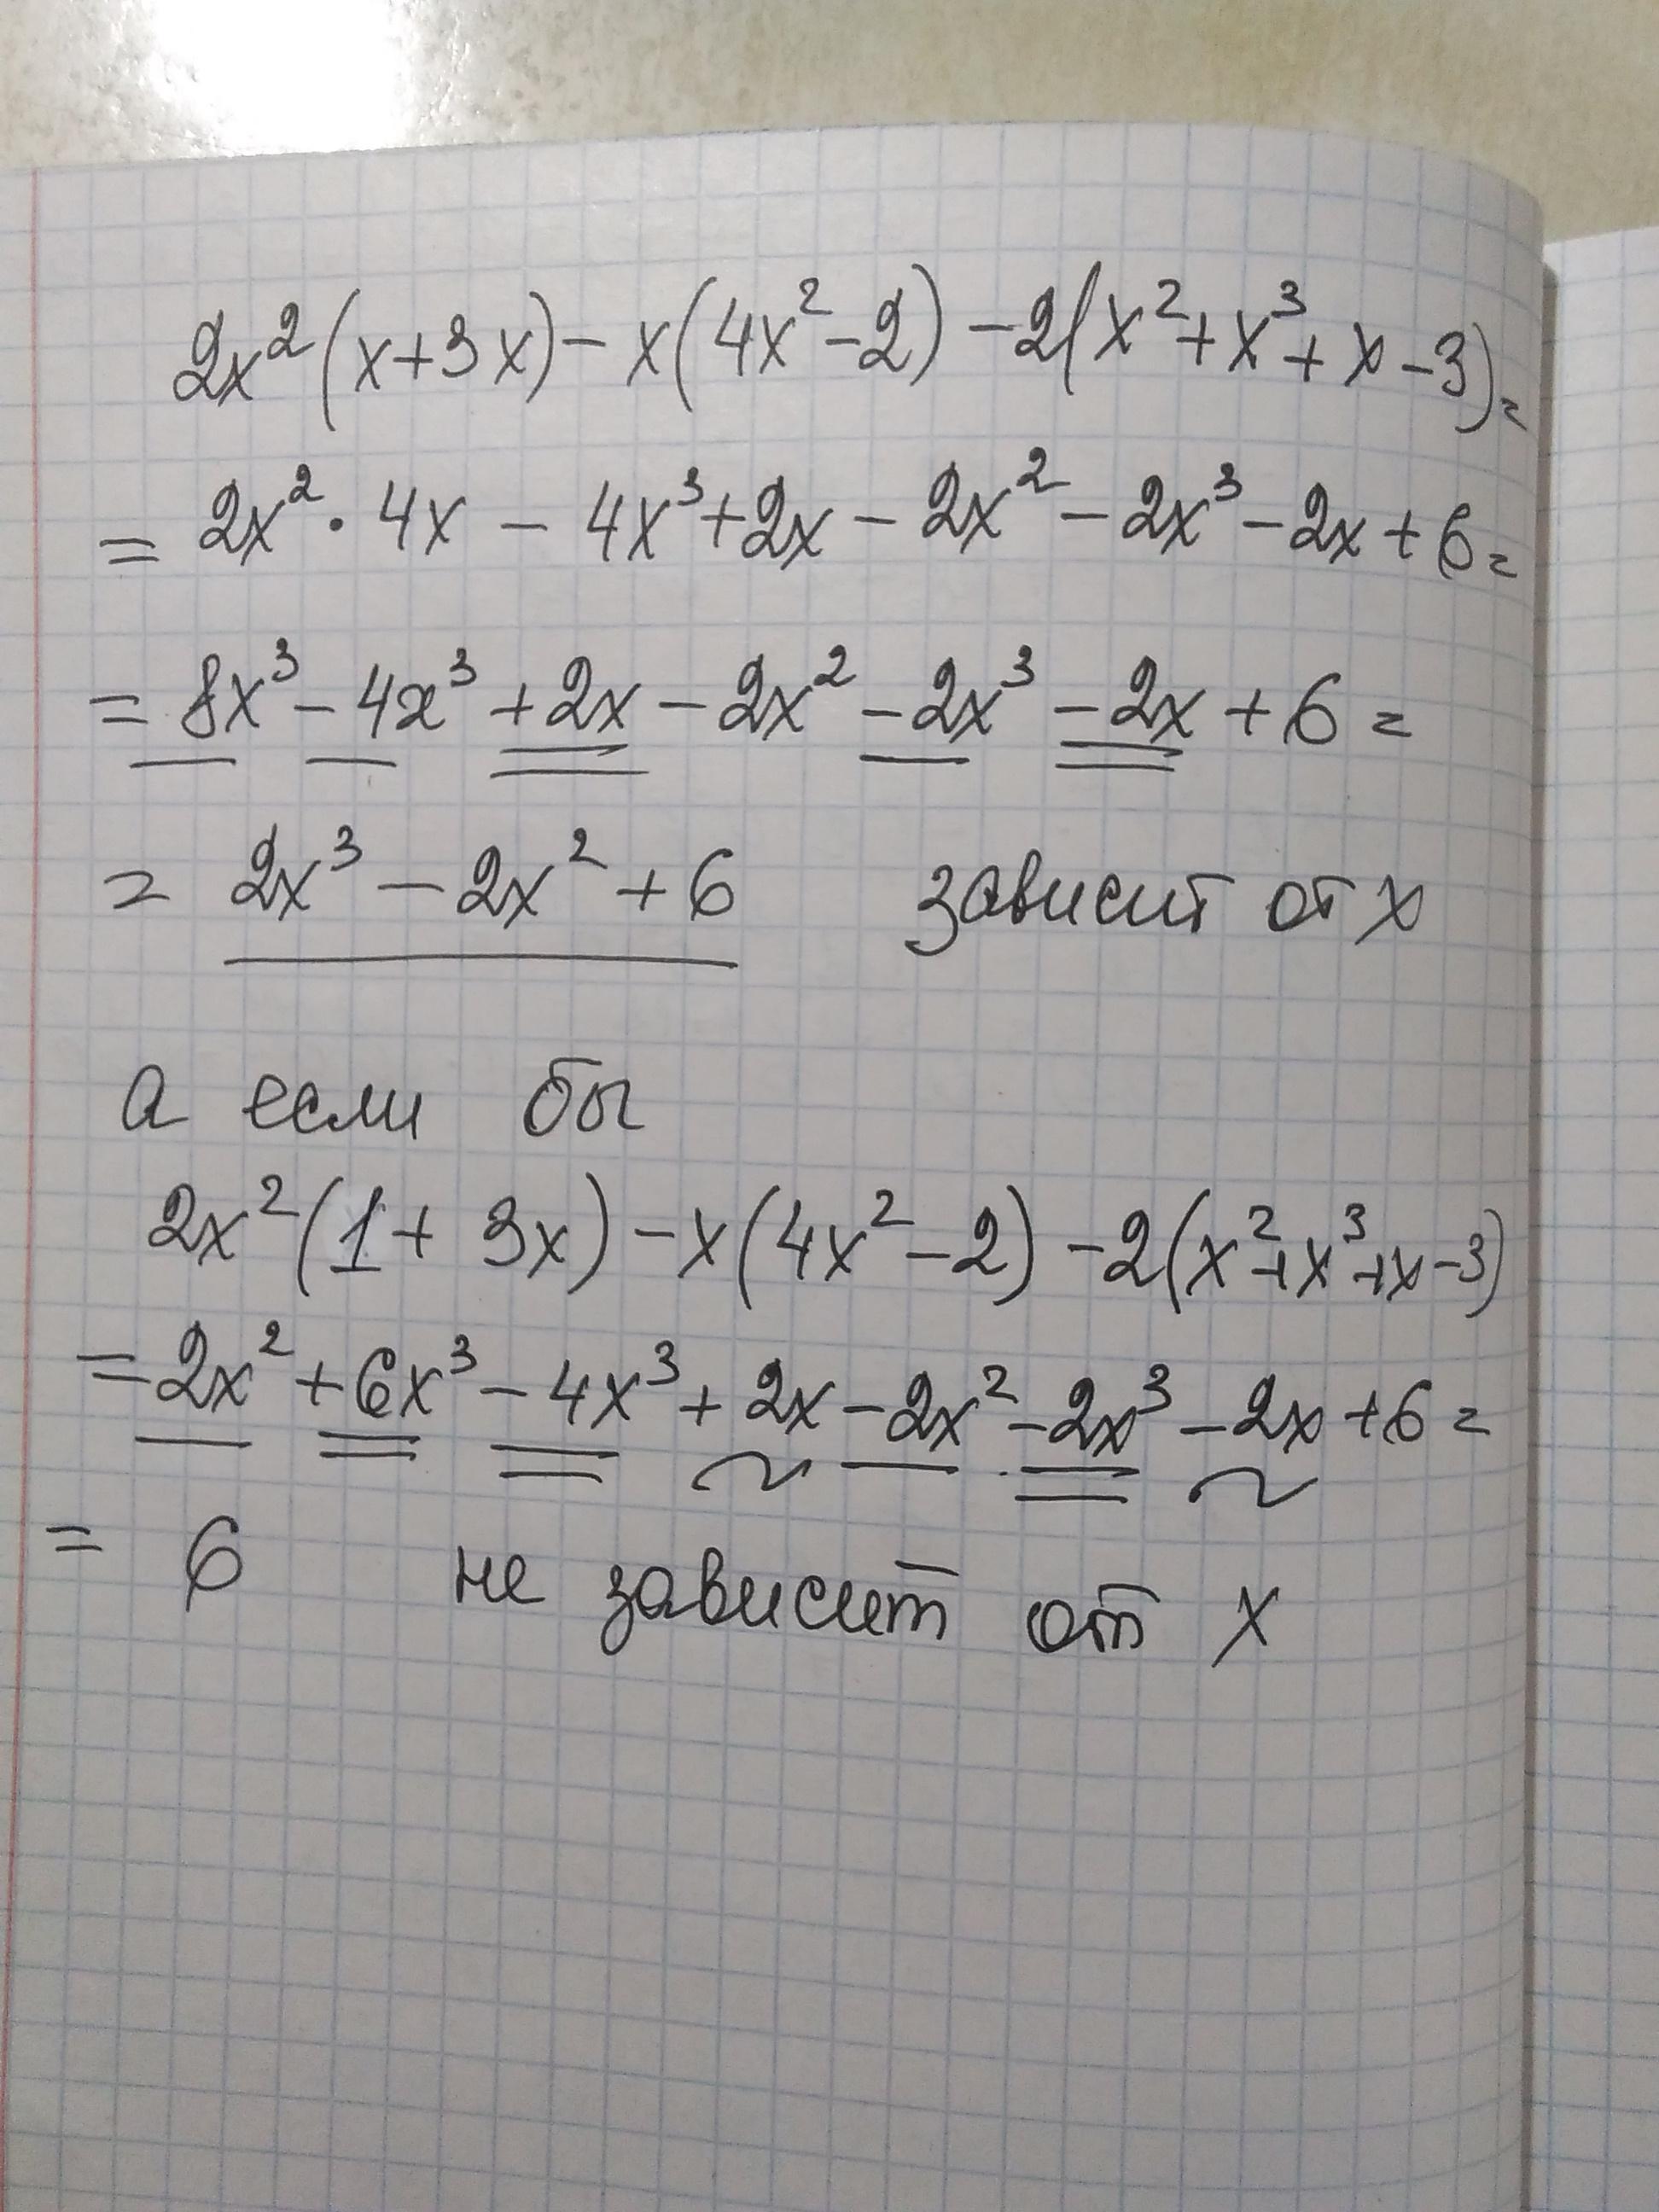 2x²(x+3x)-x(4x²-2)-2(x²+x³+x-3)=
= 2x²·4x - 4x³+2x-2x²-2x³-2x+6=
= 8x³-4x³+2x-2x²-2x³-2x+6=
= 2x³-2x²+6 зависит от x
а если бы
2x²(1+3x)-x(4x²-2)-2(x²+x³+x-3)
=2x²+6x³-4x³+2x-2x²-2x³-2x+6=
= 6 не зависит от x